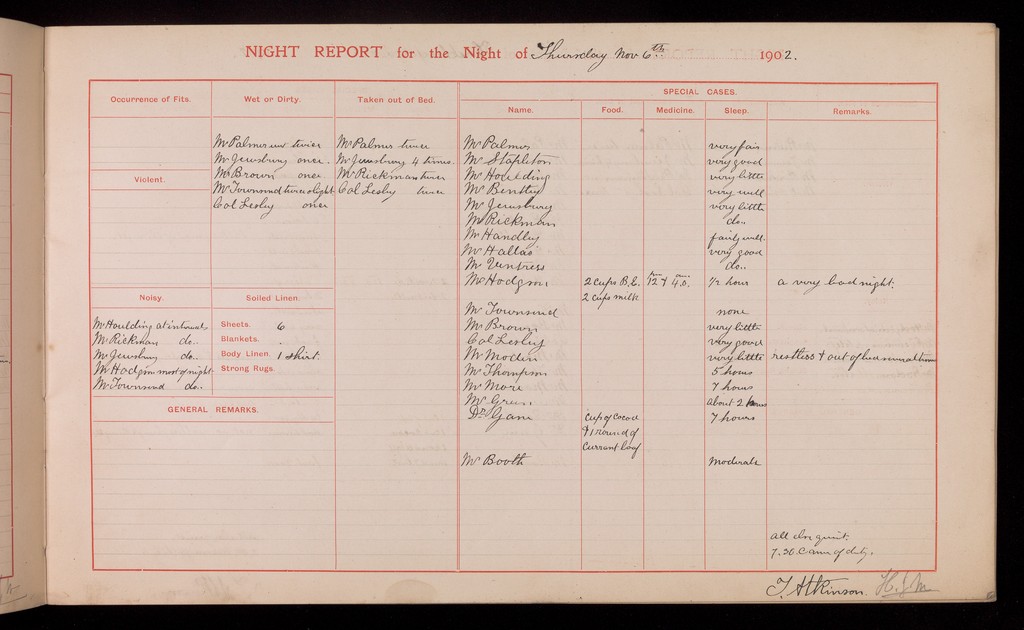 NIGHT REPORT for the Night of Thursday Nov 6th 1902.
Occurrence of Fits.
Violent.
Noisy.
Mr Houlding at intervals
Mr Rickman do..
Mr Jewsbury do..
Mr Hodgson most of night
Mr Townsend do..
Wet or Dirty.
Mr Palmer wet twice
Mr Jewsbury once.
Mr Brown once
Mr Townsend twice slight
Col Lesley once
Soiled Linen.
Sheets. 6
Blankets. .
Body Linen. 1 shirt.
Strong Rugs.
GENERAL REMARKS.
Taken out of Bed.
Mr Palmer twice
Mr Jewsbury 4 times.
Mr Rickman twice
Col Lesley twice
SPECIAL CASES.
Name. Food. Medicine. Sleep. Remarks.
Mr Palmer very fair
Mr Stapleton very good
Mr Houlding very little
Mr Bentley very well
Mr Jewsbury very little
Mr Rickman do..
Mr Handley fairly well.
Mr Hallas very good
Mr Ventress do..
Mr Hodgson 2 cups B.E. 12 & 4.0. 1/2 hour a very bad night.
2 cups milk
Mr Townsend none
Mr Brown very little
Col Lesley very good
Mr Modin very little restless & out of bed
Mr Thompson 5 hours
Mr More 7 hours
Mr Green about 2 hours
Dr Gane cup of cocoa 7 hours
& 1 round of
currant loaf
Mr Booth moderate
all else quiet.
7.30 Came of duty.
T. Atkinson. H.J.M.